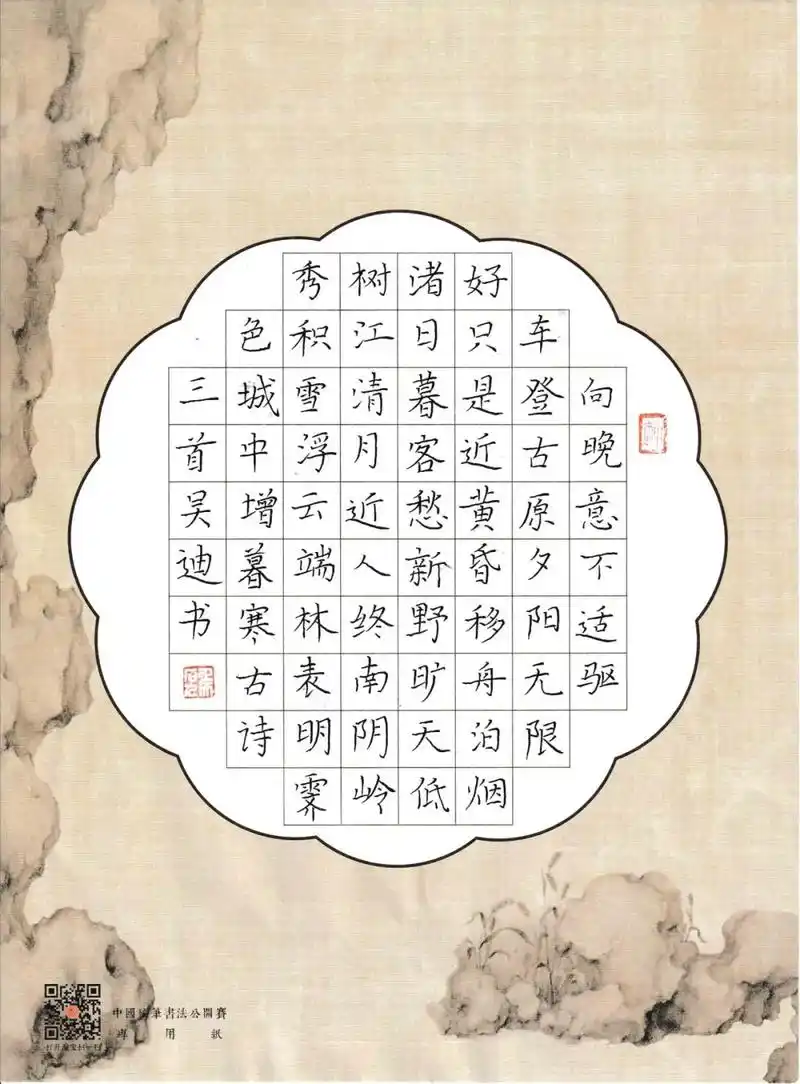 向晚意不适驱
车登古原夕阳无限
好只是近黄昏移舟泊烟
渚日暮客愁新野旷天低
树江清月近人终南阴岭
秀积雪浮云端林表明霁
色城中增暮寒古诗
三首吴迪书
中國硬筆書法公開賽
專用紙